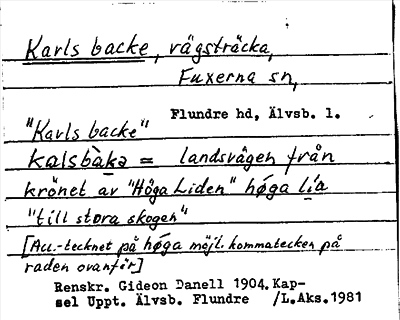 Karls backe, vägsträcka,
Fuxerna sn,
Flundre hd, Älvsb. l.
"Karls backe"
kalsbàka = landsvägen från
krönet av "Höga Liden" hǿga lia
"till stora skogen"
[Acc.-tecknet på hǿga möjl. kommatecken på
raden ovanför]
Renskr. Gideon Danell 1904. Kap-
sel Uppt. Älvsb. Flundre /L.Aks.1981